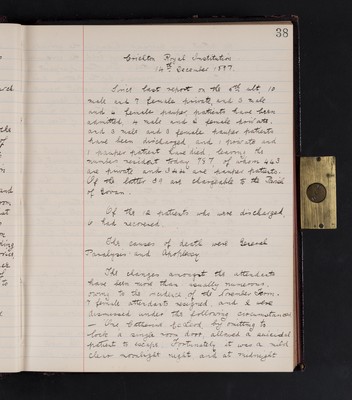 38
Crichton Royal Institution
14th December 1897.
Since last report on the 6th ult, 10
male and 7 female private, and 3 male
and 4 female pauper patients have been
admitted, 4 male and 2 female private,
and 3 male and 3 female pauper patients
have been discharged and 1 private and
1 pauper patient have died leaving the
number resident today 787, of whom 443
are private and 344 are pauper patients.
Of the latter 39 are chargeable to the Parish
of Govan.
Of the 12 patients who were discharged,
6 had recovered.
The causes of death were General
Paralysis and Apoplexy.
The changes amongst the attendants
have been more than usually numerous,
owing to the incidence of the November term.
7 female attendants resigned, and 2 were
dismissed under the following circumstances
— One Catherine by omitting to
lock a single room door allowed a suicidal
patient to escape. Fortunately it was a mild
clear moonlight night and at midnight